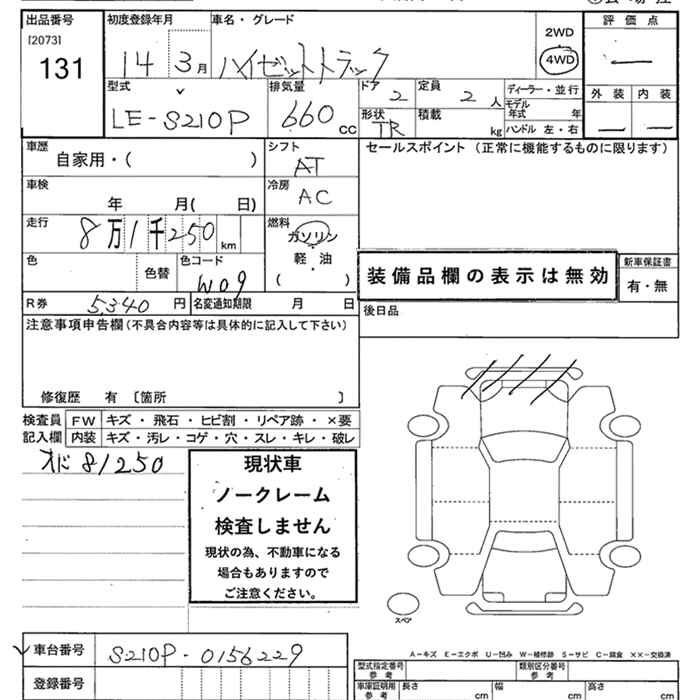 出品番号 初度登録年月 車名・グレード 2WD 評価点
[2073] 131 14 3月 ハイゼットトラック 4WD —
型式 排気量 ドア 2 定員 2人 ディーラー・並行 外装 内装
LE-S210P 660cc 形状 TR 積載 kg モデル年式 年 — —
ハンドル 左・右
車歴 シフト セールスポイント(正常に機能するものに限ります)
自家用・( ) AT
車検 冷房
年 月( 日) AC
走行 燃料
8万1千250km ガソリン・軽油・( )
色 色替 色コード W09 装備品欄の表示は無効 新車保証書
有・無
R券 5,340円 名変通知期限 月 日 後日品
注意事項申告欄(不具合内容等は具体的に記入して下さい)
修復歴 有 〔箇所 〕
検査員 FW キズ・飛石・ヒビ割・リペア跡・×要
記入欄 内装 キズ・汚レ・コゲ・穴・スレ・キレ・破レ
オド 81250
現状車
ノークレーム
検査しません
現状の為、不動車になる
場合もありますので
ご注意ください。
スペア
A-キズ E-エクボ U-凹み W-補修跡 S-サビ C-腐食 ××-交換済
車台番号 S210P-0156229
登録番号
型式指定番号 参考 類別区分番号 参考
車庫証明用 参考 長さ cm 幅 cm 高さ cm